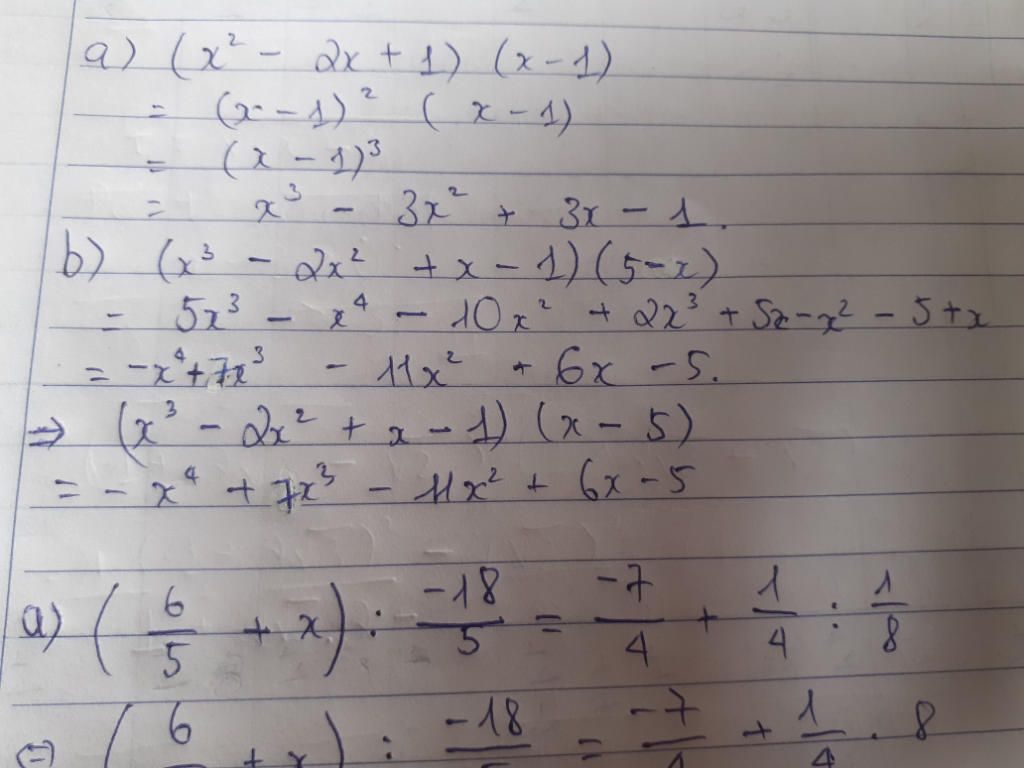 a) (x² - 2x + 1) (x - 1)
= (x - 1)² (x - 1)
= (x - 1)³
= x³ - 3x² + 3x - 1.
b) (x³ - 2x² + x - 1)(5 - x)
= 5x³ - x⁴ - 10x² + 2x³ + 5x - x² - 5 + x
= -x⁴ + 7x³ - 11x² + 6x - 5.
⇒ (x³ - 2x² + x - 1) (x - 5)
= - x⁴ + 7x³ - 11x² + 6x - 5
a) (6/5 + x) : -18/5 = -7/4 + 1/4 : 1/8
⇔ (6/ + x) : -18/5 = -7/4 + 1/4 . 8